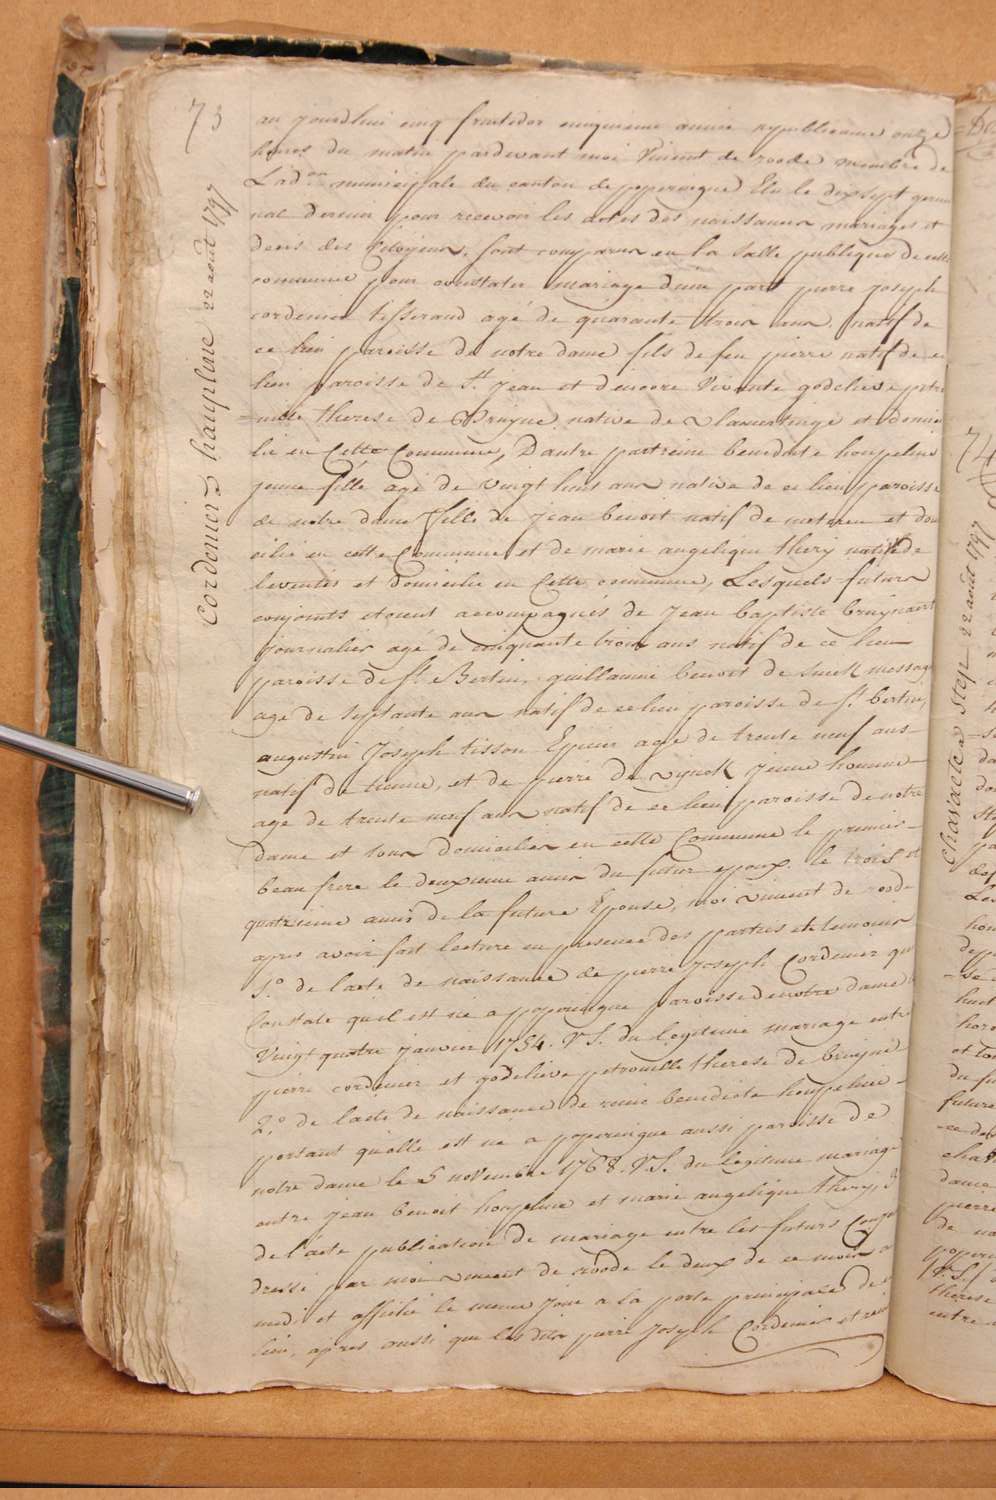 73
cordenier & haupline 22 août 1797
au jourdhui cinq fructidor cinquieme année republicaine onze
heures du matin pardevant moi Vincent de roode membre de
L'ad.on municipale du canton de poperingue Elu le dix sept germi
nal dernier pour recevoir les actes des naissances mariages et
deces des Citoyens, sont comparus en la salle publique de cette
commune pour constater mariage d'une part pierre joseph
cordenier tisserand agé de quarante trois ans natif de
ce lieu paroisse de notre dame fils de feu pierre natif de ce
lieu paroisse de St. Jean et d'encore Vivante godelieve petro
=nille therese de Bruyne native de vlamertinge et domici
lie en Cette Commune, D'autre part reine benedicte houpeline
jeune fille agé de vingt huit ans native de ce lieu paroisse
de notre dame fille de Jean benoit natif de meteren et dom
cilié en cette Commune et de marie angelique thery native de
et domicilie en Cette commune, Lesquels futurs
conjoints etoient accompagnés de Jean baptiste bruynaert
journalier agé de cinquante trois ans natif de ce lieu
paroisse de St. Bertin, guillaume benoit de messag
agé de septante ans natif de ce lieu paroisse de St. bertin,
augustin Joseph tisson Epicier agé de trente neuf ans
natif de et de pierre de jeune homme
agé de trente neuf ans natif de ce lieu paroisse de notre
dame et tous domiciliés en cette Commune le premier
beau frere le deuxieme amis du futur epoux. le trois et
quatrieme amis de la future Epouse, moi vincent de roode
apres avoir fait lecture en presence des parties et temoins
1.o de l'acte de naissance de pierre Joseph Cordenier qui
Constate qu'il est né a poperingue paroisse de notre dame
Vingt quatre janvier 1754. V.S. du legitime mariage entre
pierre cordenier et godelieve petronille therese de bruyne
2.o de l'acte de naissance de reine benedicte houpeline
portant qu'elle est né a poperingue aussi paroisse de
notre dame le 5 novembre 1768. V.S. du legitime mariage
entre Jean benoit houpeline et marie angelique thery, 3
de l'acte publication de mariage entre les futurs Conjo
dressé par moi vincent de roode le deux de ce mois a
midi et affiché le meme jour a la porte principale de ce
lieu, apres aussi que les dits pierre Joseph Cordenier et reine
74
charlacte & Step 22 août 1797